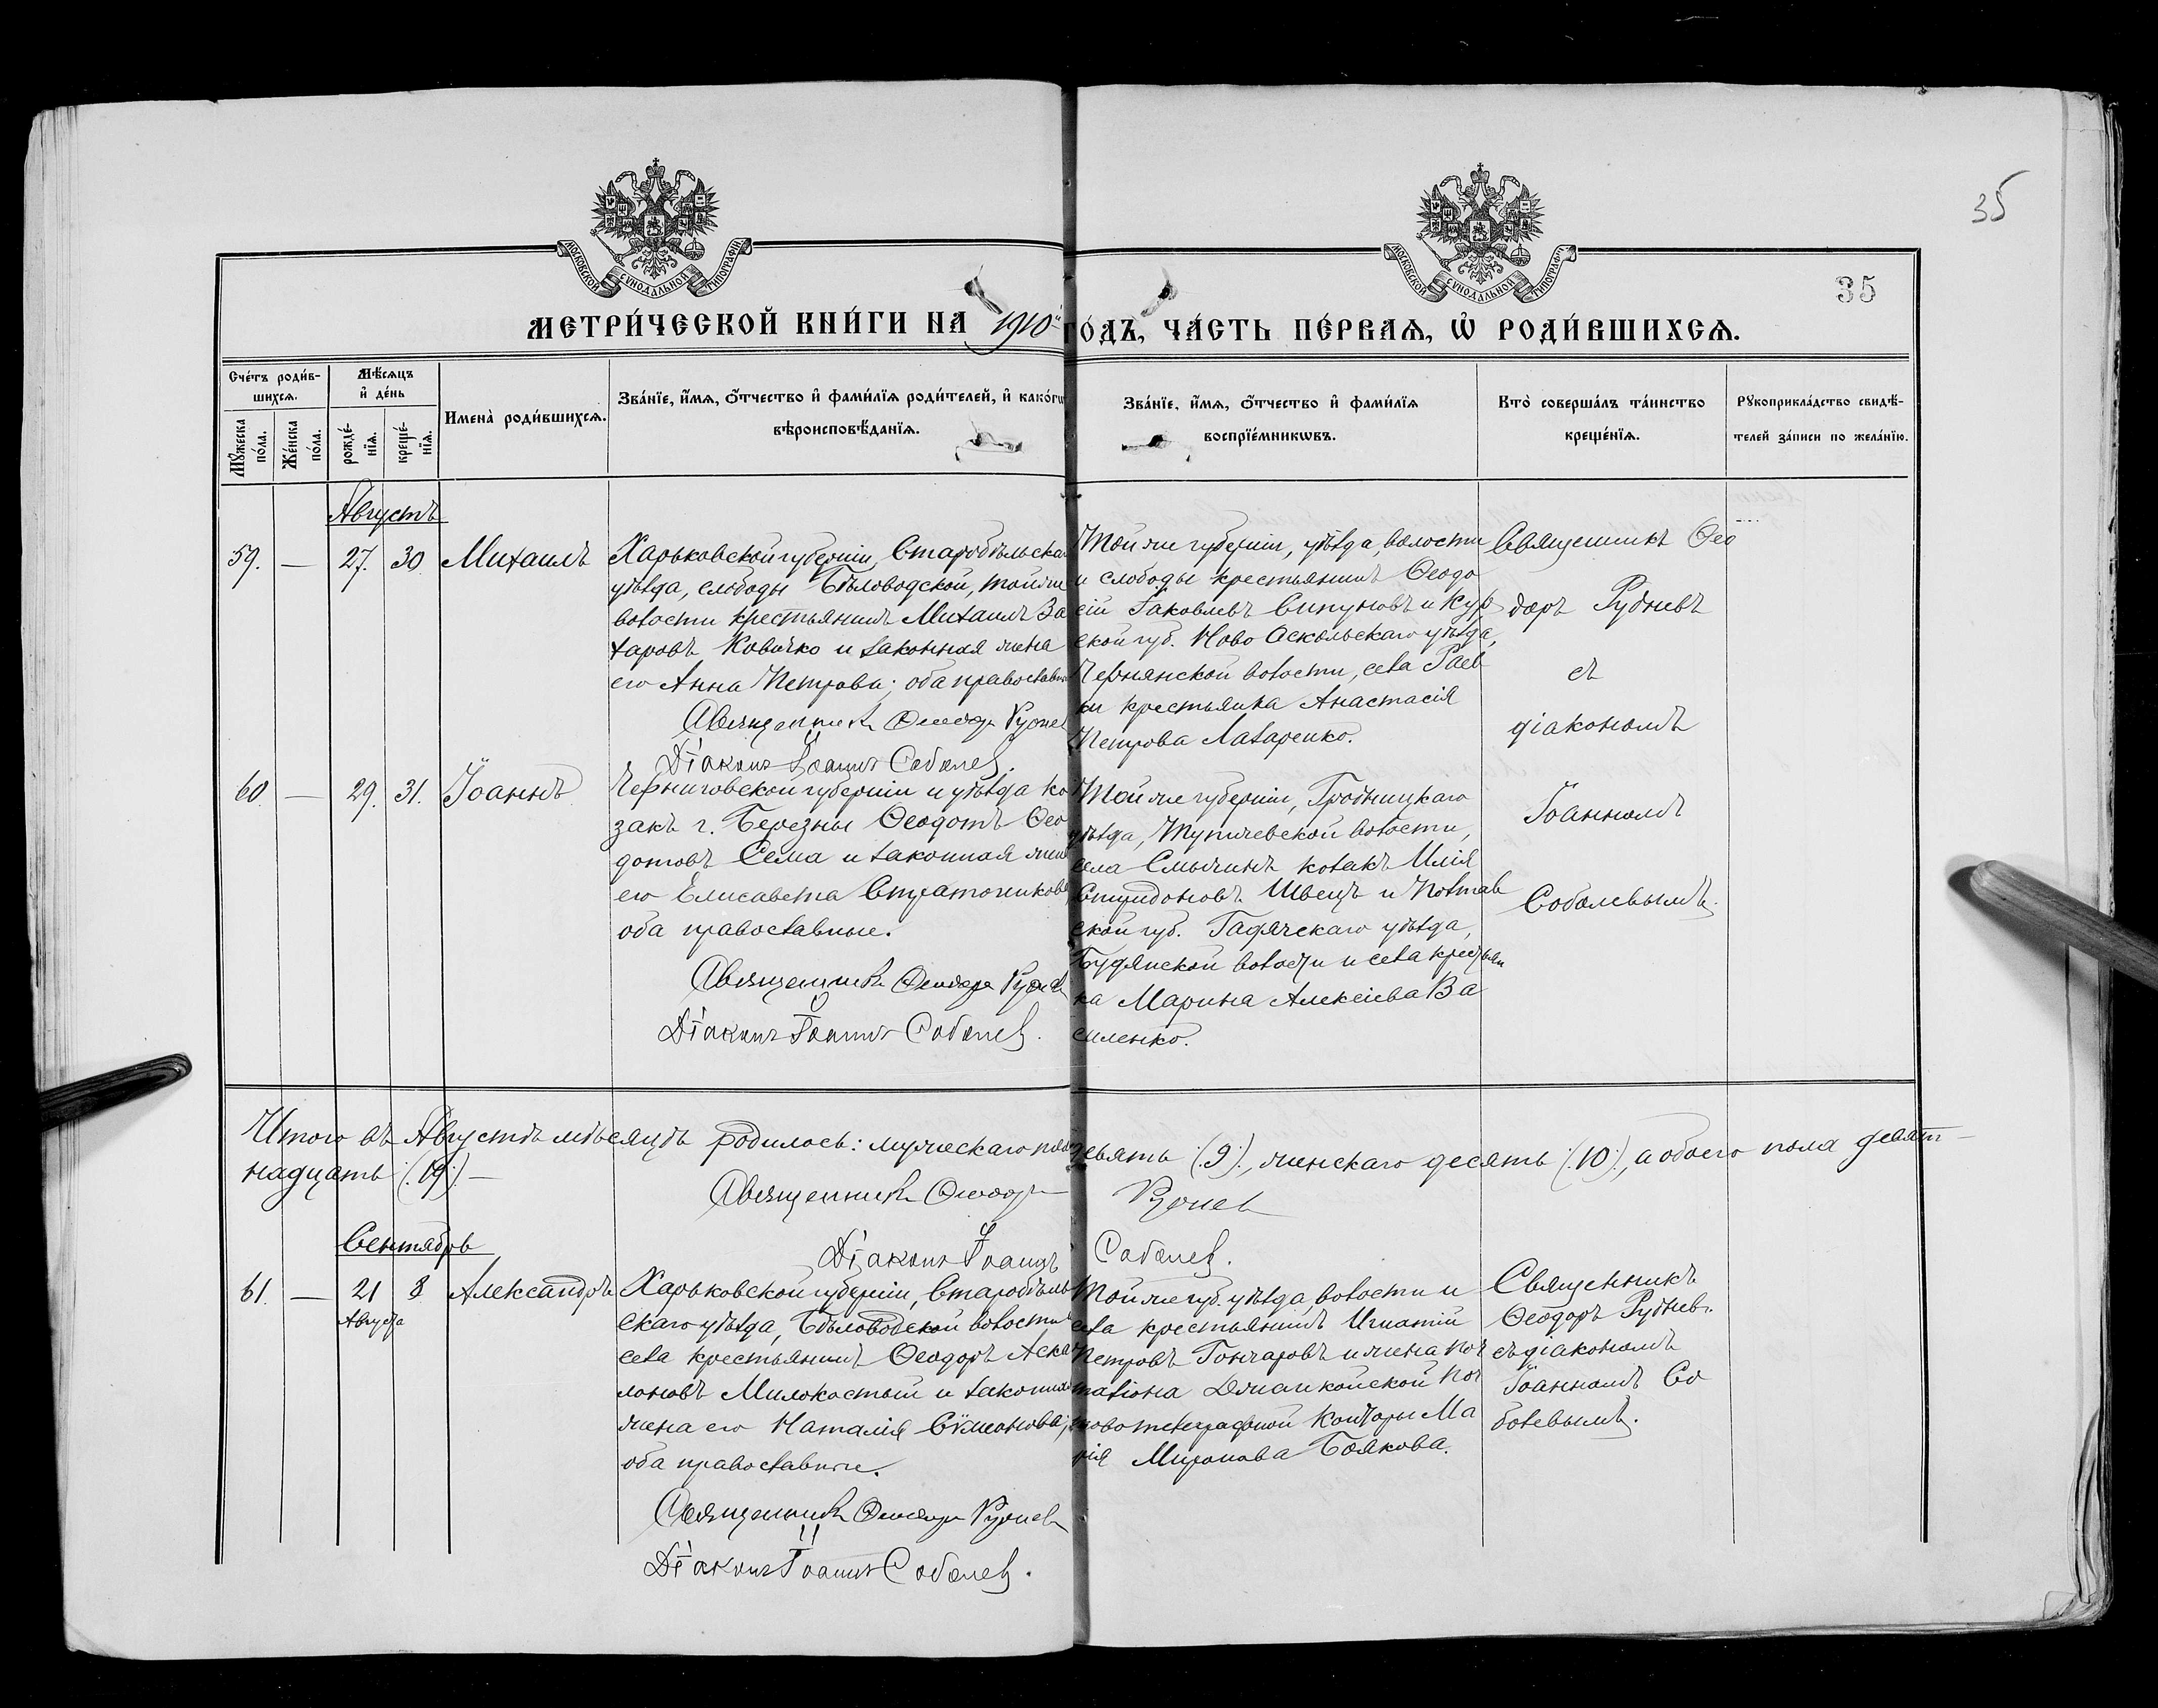 35
МОСКОВСКОЙ СѴНОДАЛЬНОЙ ТИПОГРАФІИ
МОСКОВСКОЙ СѴНОДАЛЬНОЙ ТИПОГРАФІИ
35
МЕТРИ́ЧЕСКОЙ КНИ́ГИ НА 1910й ГО́ДЪ, ЧА́СТЬ ПЕ́РВАѦ, Ѡ҆ РОДИ́ВШИХСѦ.
Сче́тъ роди́в-
шихсѧ.
Мꙋ́жеска по́ла.
Же́нска по́ла.
Мѣ́сѧцъ
и҆ де́нь
рожде́-
нїѧ.
креще́-
нїѧ.
Имена̀ роди́вшихсѧ.
Зва́нїе, и҆́мѧ, ѻ҆́тчество и҆ фами́лїѧ роди́телей, и҆ како́гѡ
вѣроисповѣ́данїѧ.
Зва́нїе, и҆́мѧ, ѻ҆́тчество и҆ фами́лїѧ
воспрїе́мникѡвъ.
Кто̀ соверша́лъ та́инство
креще́нїѧ.
Рꙋкоприкла́дство свидѣ́-
телей за́писи по жела́нїю.
Августъ
59. — 27. 30 Михаилъ
Харьковской губерніи, Старобѣльскаго
уѣзда, слободы Бѣловодской, той же
волости крестьянинъ Михаилъ За
харовъ и законная жена
его Анна Петрова; оба православные
Священникъ Ѳеодоръ Руднев
Діаконъ Іоаннъ Соболев.
Той же губерніи, уѣзда, волости
и слободы крестьянинъ Ѳеодо
сій Іаковлевъ Сипуновъ и Кур
ской губ. Ново Оскольскаго уѣзда,
Чернянской волости, села Раев
ки крестьянка Анастасія
Петрова Лазаренко.
Священникъ Ѳео
доръ Рудневъ
съ
діакономъ
Іоанномъ
Соболевымъ.
60 — 29. 31. Іоаннъ
Черниговской губерніи и уѣзда ко
закъ г. Березны Ѳеодотъ Ѳео
дотовъ Сема и законная жена
его Елисавета Стратоникова
оба православные.
Священникъ Ѳеодоръ Руднев
Діаконъ Іоаннъ Соболев.
Той же губерніи, Гродницкаго
уѣзда, Тупичевской волости,
села Смычинъ козакъ Илія
Спиридоновъ Швецъ и Полтав
ской губ. Гадячскаго уѣзда,
Будянской волости и села крестьян
ка Марина Алексіева Ва
силенко.
Итого въ Августѣ мѣсяцѣ родилось: мужескаго пола девять (:9:), женскаго десять (:10:), а обоего пола девят-
надцать (:19:) —
Священникъ Ѳеодоръ Руднев
Діаконъ Іоаннъ Соболев.
Сентябрь
61. — 21 8 Александръ
Августа
Харьковской губерніи, Старобѣль
скаго уѣзда, Бѣловодской волости и
села крестьянинъ Ѳеодоръ Аска
лоновъ Милокостый и законная
жена его Наталія Сѵмеонова;
оба православные.
Священникъ Ѳеодоръ Руднев
Діаконъ Іоаннъ Соболев.
Той же губ. уѣзда, волости и
села крестьянинъ Игнатій
Петровъ Гончаровъ и жена поч
таліона Джанкойской поч
тово телеграфной конторы Ма
рія Миронова Боякова.
Священникъ
Ѳеодоръ Рудневъ
съ діакономъ
Іоанномъ Со
болевымъ.